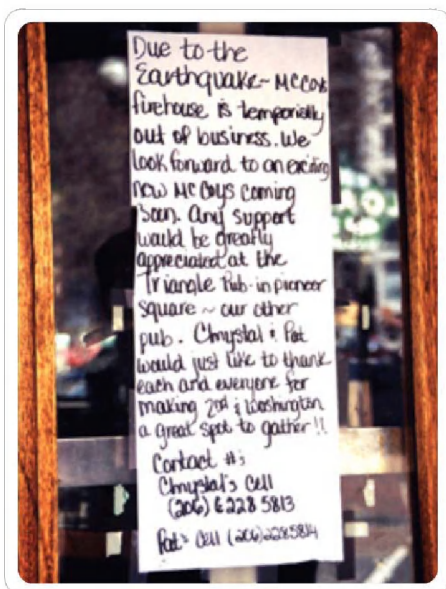 Due to the
Earthquake~ McCoys
firehouse is temporially
out of business. We
look forward to an exciting
new McCoys coming
soon. Any support
would be greatly
appreciated at the
Triangle Pub in pioneer
square ~ our other
pub. Chrystal & Pat
would just like to thank
each and everyone for
making 2nd & Washington
a great spot to gather!!
Contact #;
Chrystal's Cell
(206) 6228 5813
Pat's Cell (206) 2285814